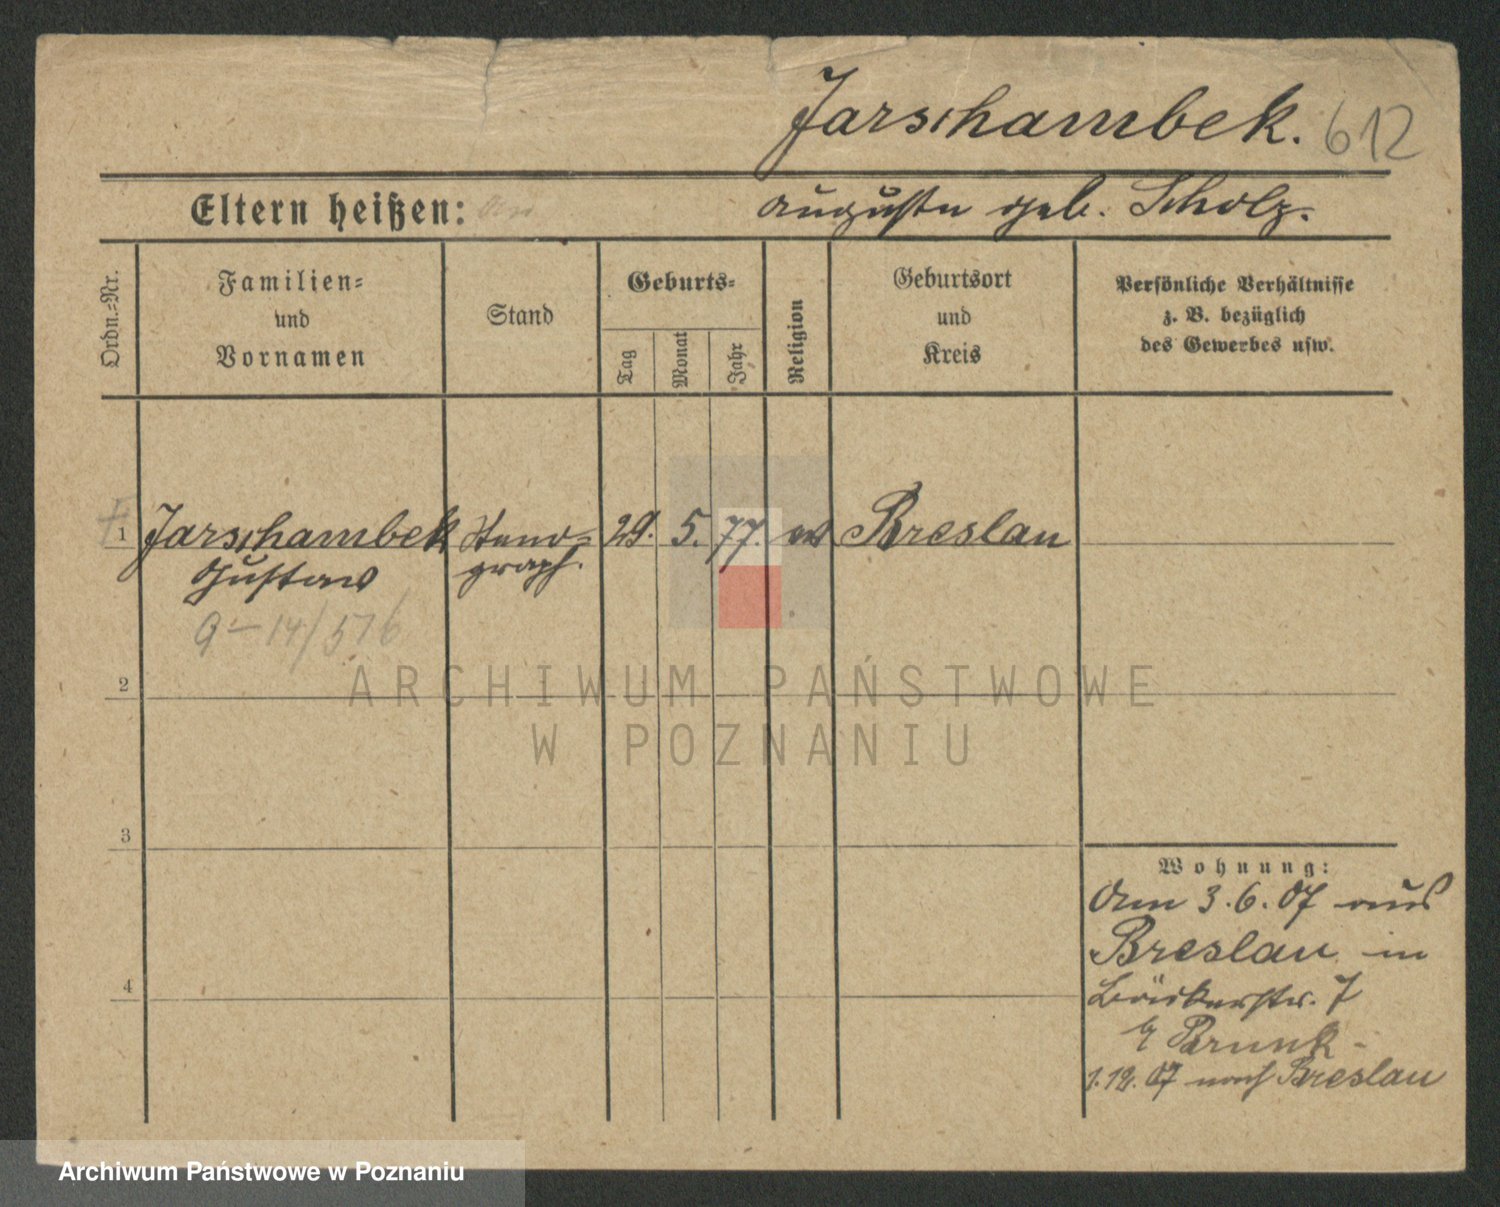 Jarschambek. 612
Eltern heißen:
Auguste geb. Scholz.
Ordn.-Nr.
Familien-
und
Vornamen
Stand
Geburts-
Tag
Monat
Jahr
Religion
Geburtsort
und
Kreis
Persönliche Verhältnisse
z. B. bezüglich
des Gewerbes usw.
1 Jarschambek Steno- 29. 5. 77. ev Breslau
Gustav graph.
G-14/576
2
3
4
Wohnung:
Am 3.6.07 aus
Breslau in
Bäckerstr. 7
Brunk-
1.12.07 nach Breslau
ARCHIWUM PAŃSTWOWE
W POZNANIU
Archiwum Państwowe w Poznaniu